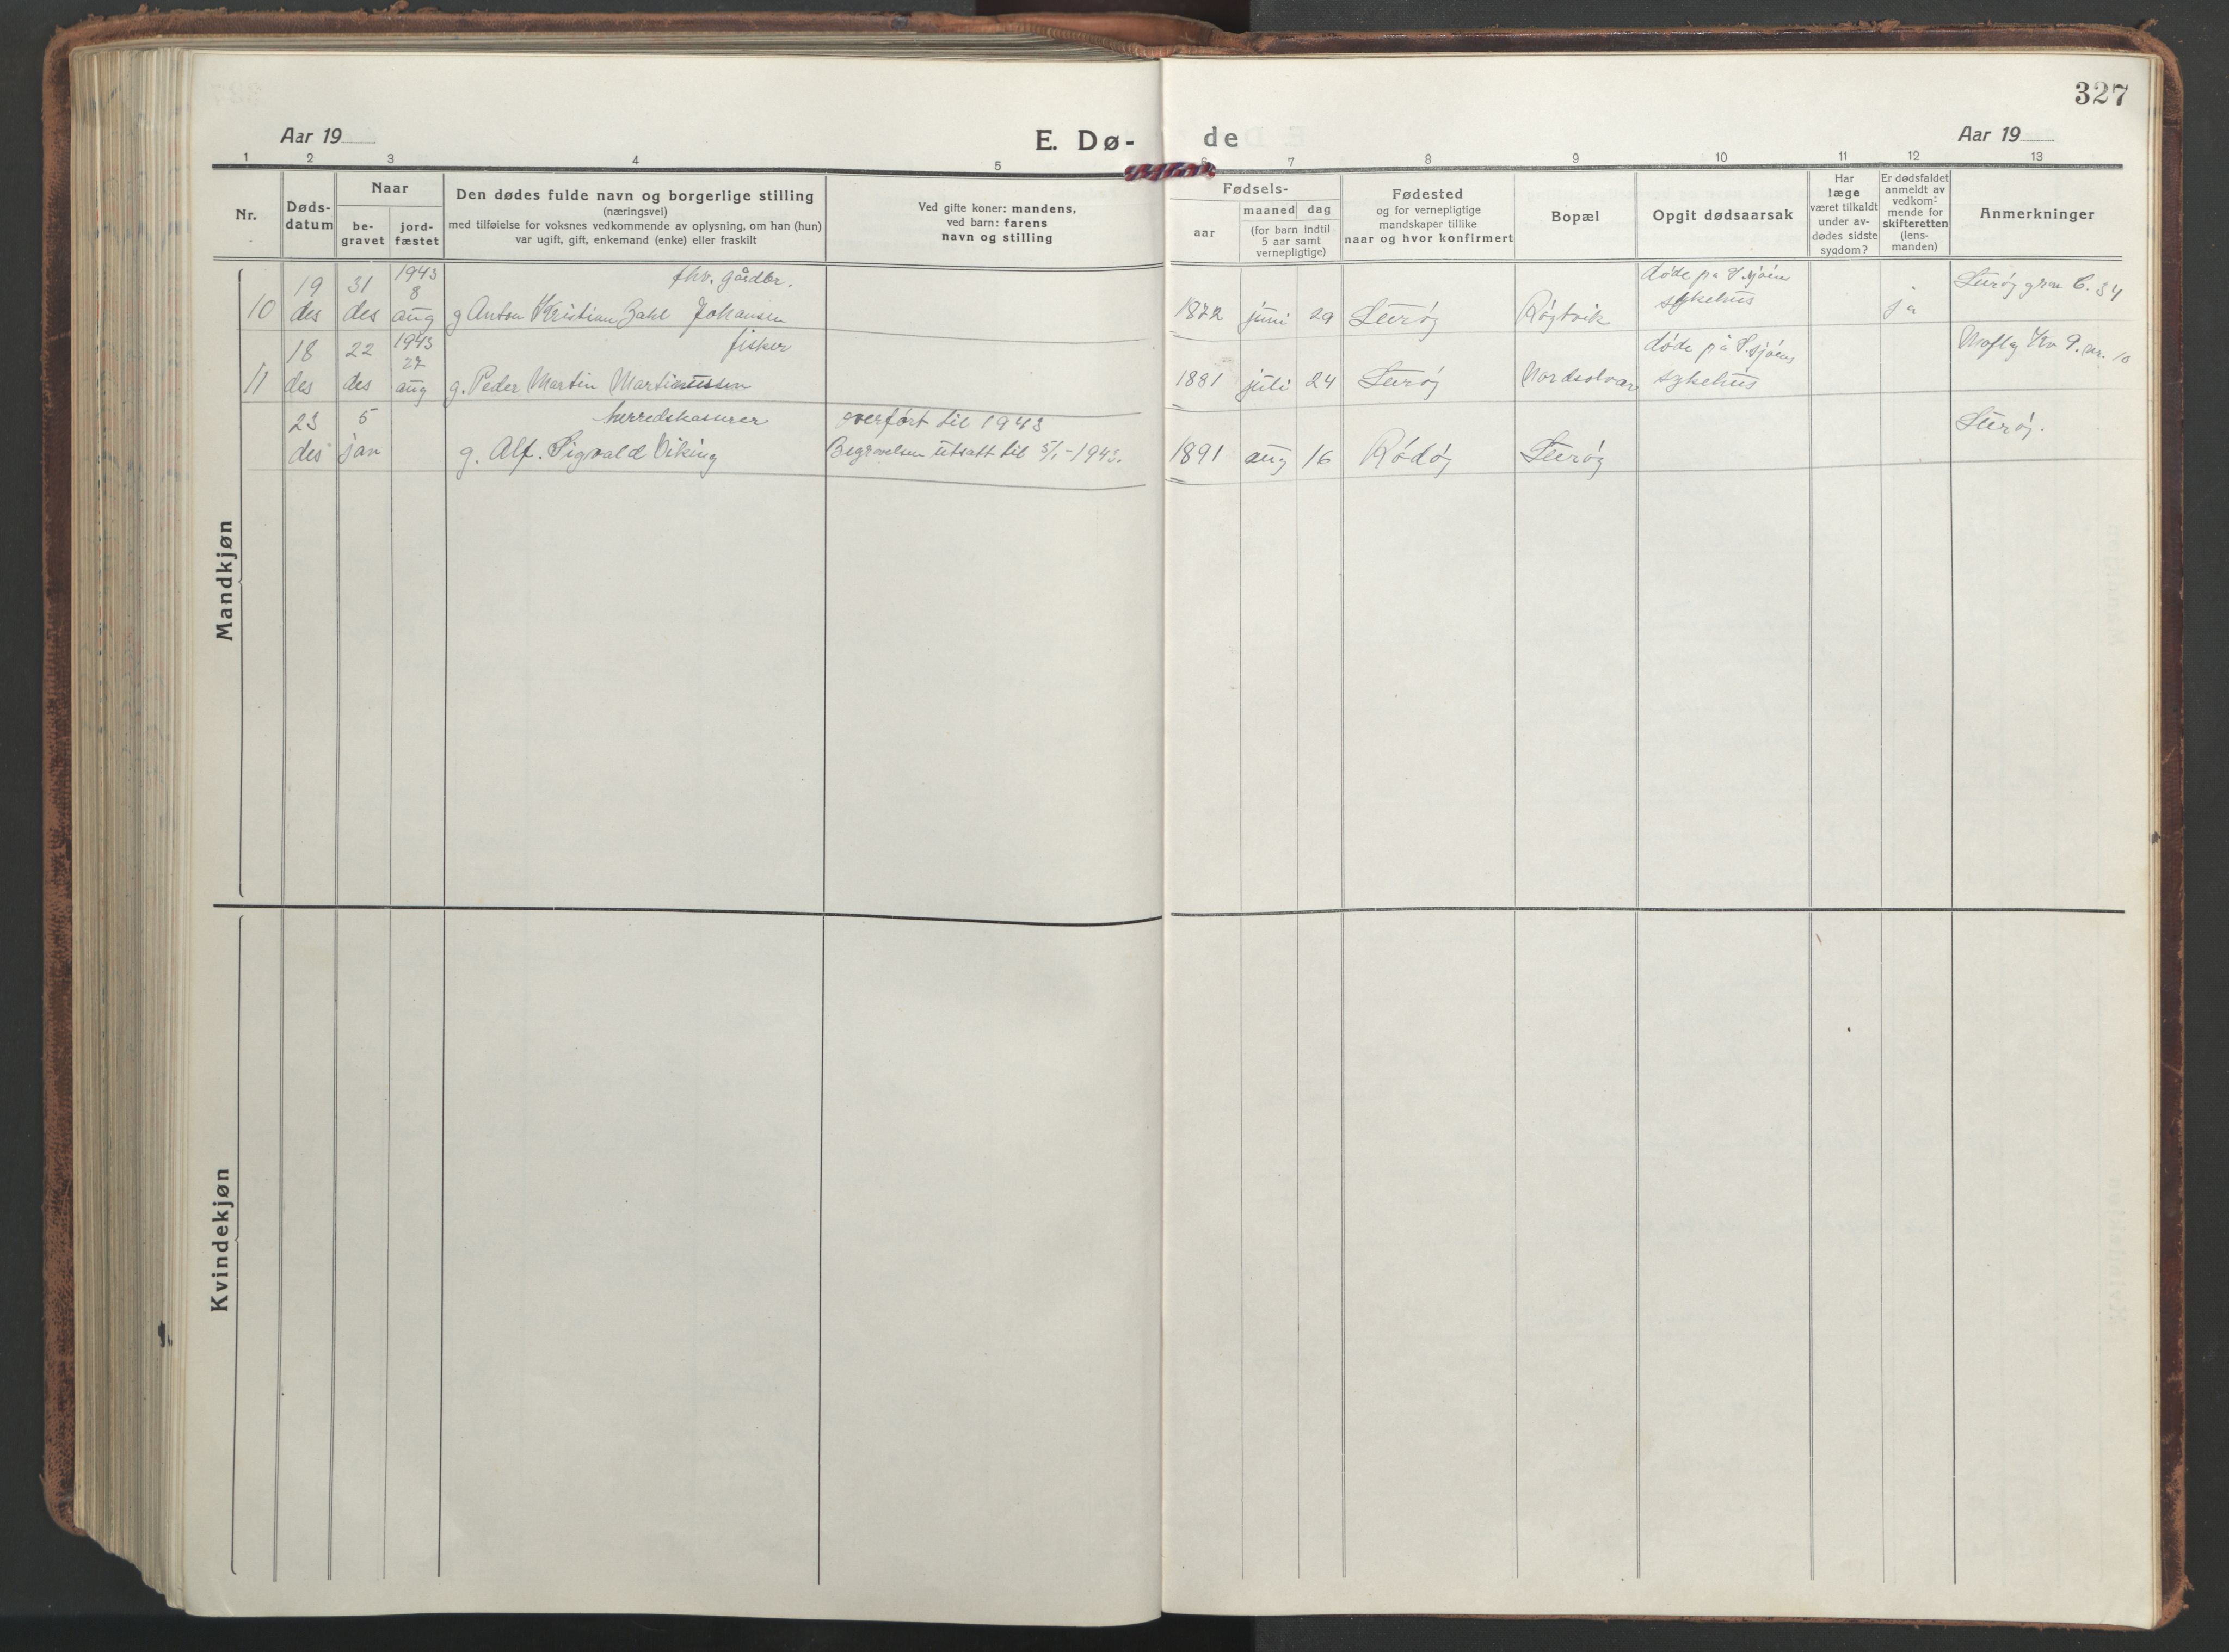 327
Aar 19
E. Dø-
de
Aar 19
1 2 3 4 5 6 7 8 9 10 11 12 13
Nr.
Døds-
datum
Naar
be-
gravet
jord-
fæstet
Den dødes fulde navn og borgerlige stilling
(næringsvei)
med tilføielse for voksnes vedkommende av oplysning, om han (hun)
var ugift, gift, enkemand (enke) eller fraskilt
Ved gifte koner: mandens,
ved barn: farens
navn og stilling
Fødsels-
aar
maaned dag
(for barn indtil
5 aar samt
vernepligtige)
Fødested
og for vernepligtige
mandskaper tillike
naar og hvor konfirmert
Bopæl
Opgit dødsaarsak
Har
læge
været tilkaldt
under av-
dødes sidste
sygdom?
Er dødsfaldet
anmeldt av
vedkom-
mende for
skifteretten
(lens-
manden)
Anmerkninger
Mandkjøn
19 31 1943 8 fhv. gårdbr. døde på S.sjøens Lurøy grav C. 84
10 des des aug g Anton Kristian Zahl Johansen 1872 juni 29 Lurøy sykehus ja
18 22 1943 27 fisker døde på S.sjøens
11 des des aug g. Peder Martin Martinussen 1881 juli 24 Lurøy Nordsolvær sykehus
23 5 herredskasserer overført til 1943 Lurøy.
des jan g. Alf. Sigvald Viking Begravelsen utsatt til 5/1-1943. 1891 aug 16 Rødøy Lurøy
Kvindekjøn